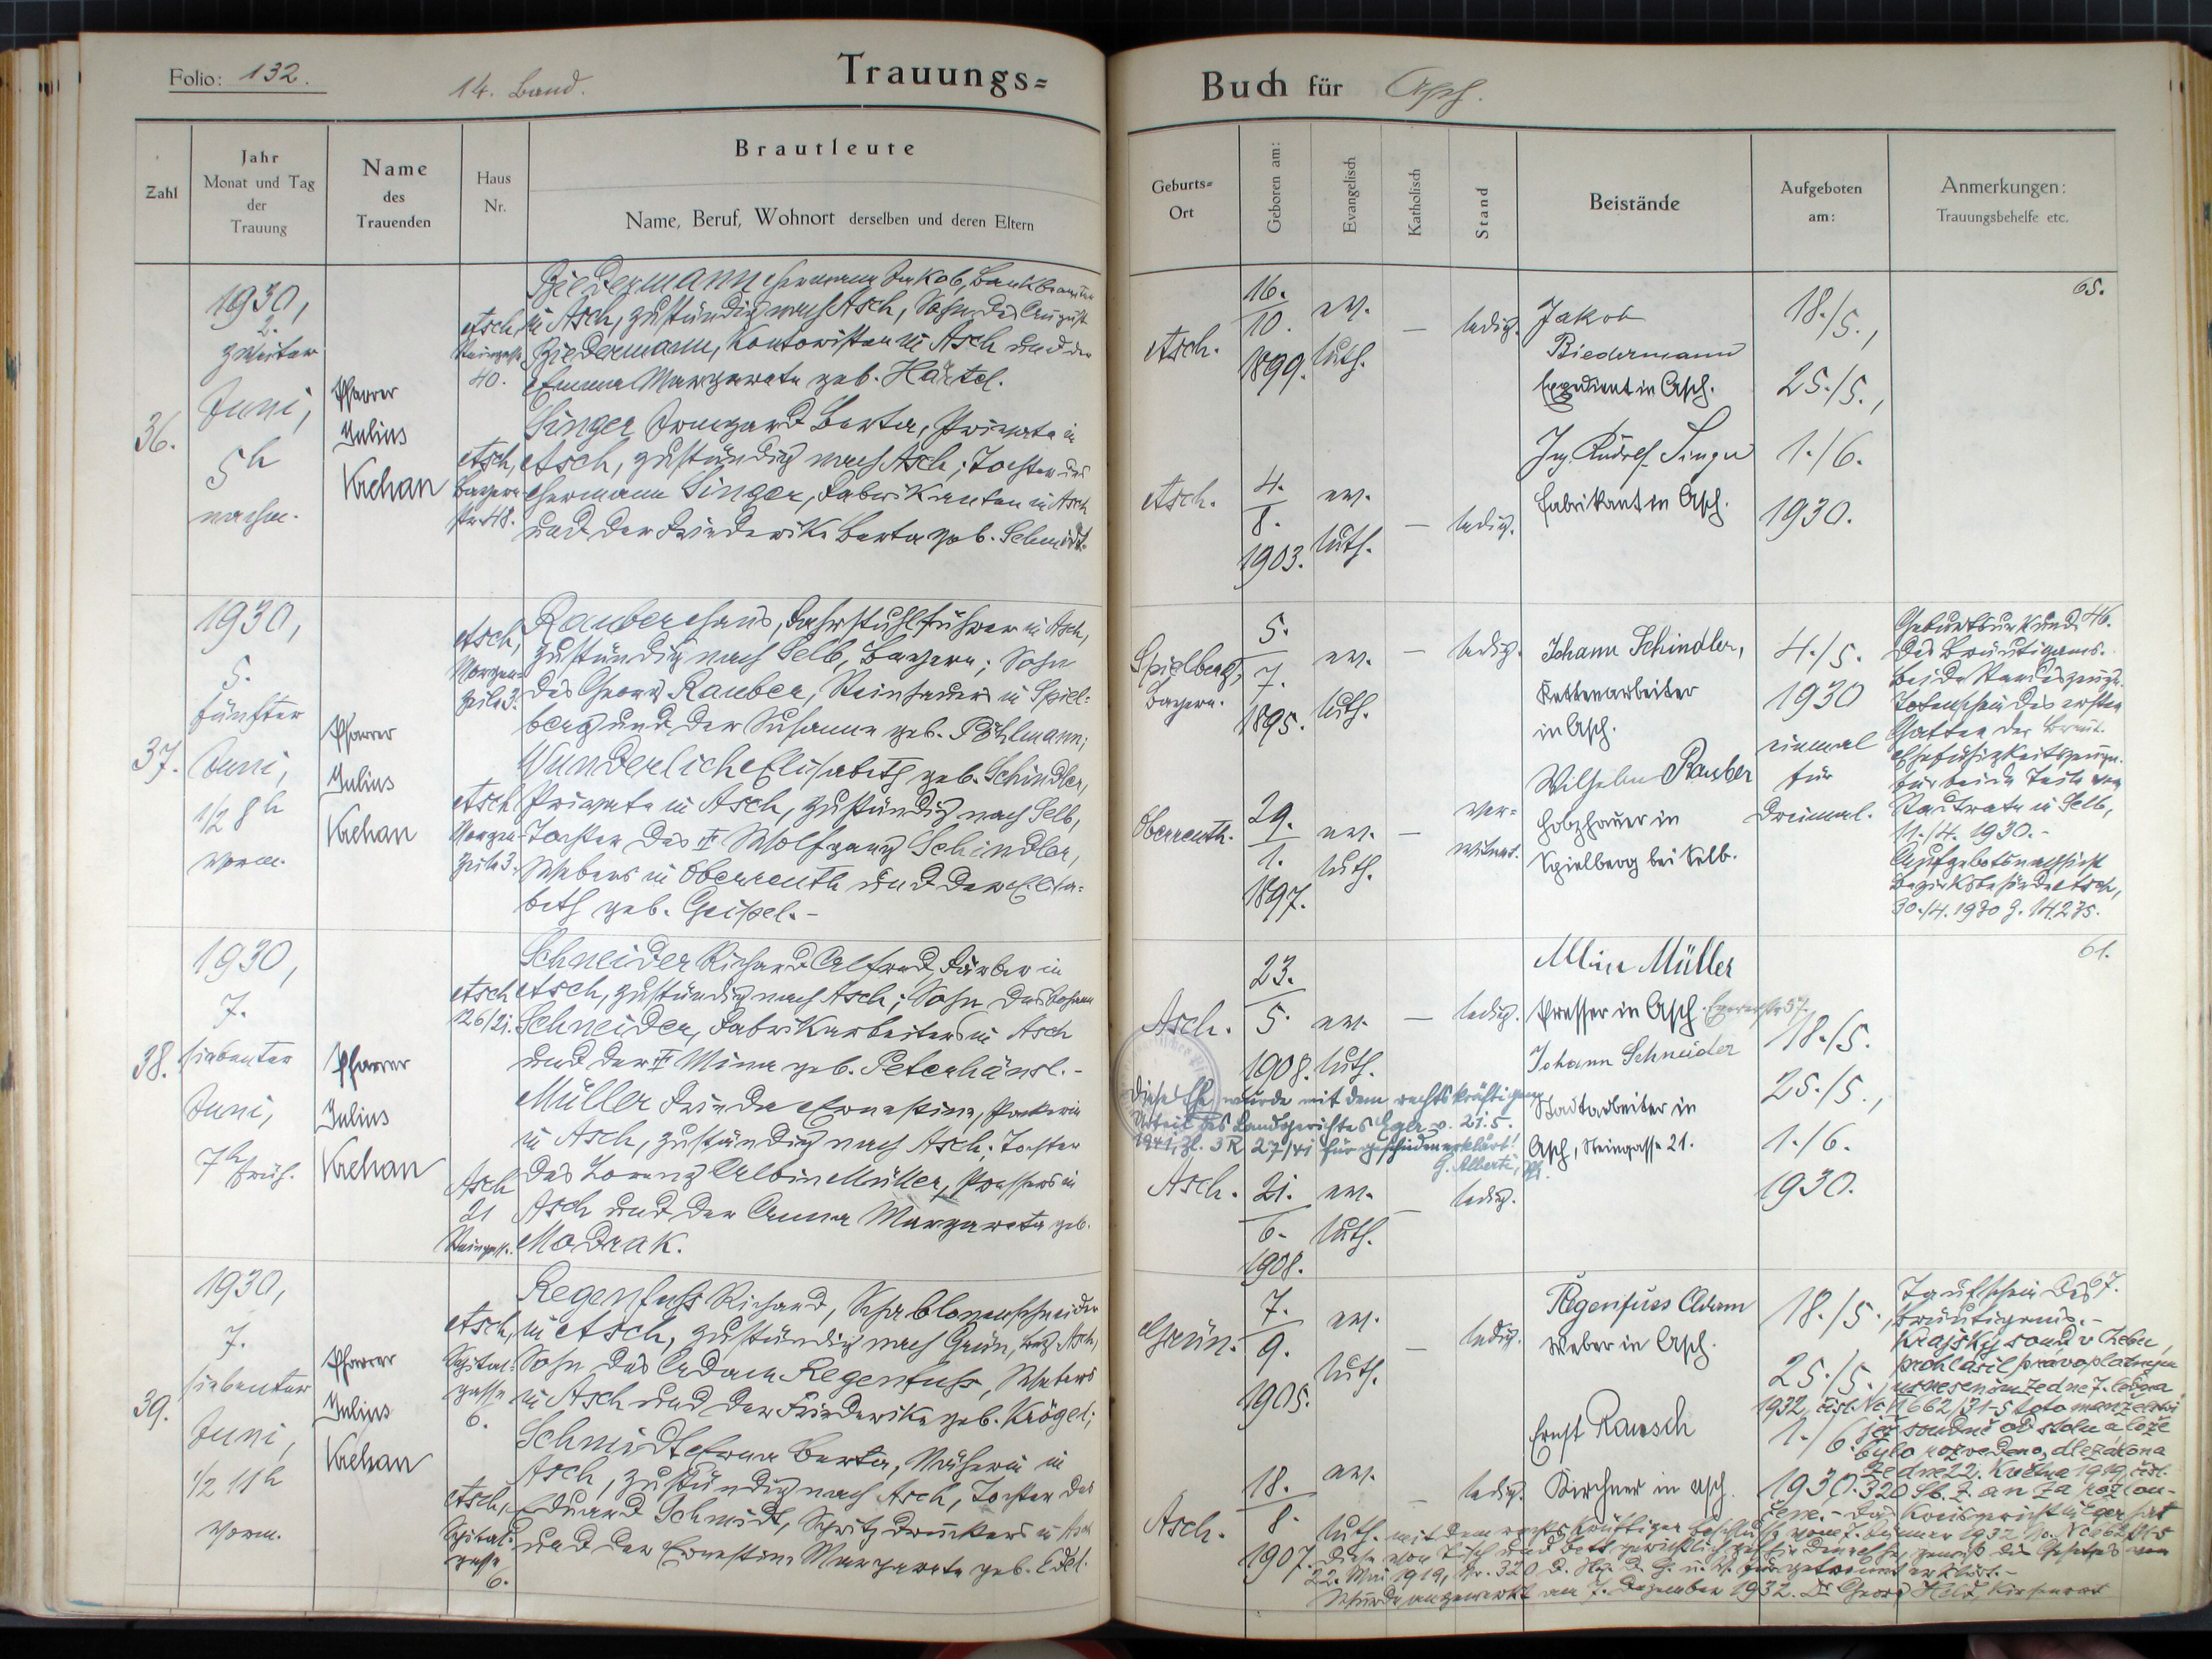 Folio: 132.
14. Band.
Trauungs=
Buch für Asch.
Zahl
Jahr
Monat und Tag
der
Trauung
Name
des
Trauenden
Haus
Nr.
Brautleute
Name, Beruf, Wohnort derselben und deren Eltern
Geburts=
Ort
Geboren am:
Evangelisch
Katholisch
Stand
Beistände
Aufgeboten
am:
Anmerkungen:
Trauungsbehelfe etc.
36.
1930,
2.
zweiter
Juni,
5h
nachm.
Pfarrer
Julius
Krehan
Asch,
Steingasse
40.
Biedermann Hermann Jakob, Bankbeamter
in Asch, zuständig nach Asch, Sohn des August
Biedermann, Kontoristen in Asch und der
Emma Margareta geb. Härtel.
Asch,
Bayern
str. 48.
Singer Irmgard Berta, Private in
Asch, zuständig nach Asch; Tochter des
Hermann Singer, Fabrikanten in Asch
und der Friederike Berta geb. Schmidt.
Asch.
16.
10.
1899.
ev.
luth.
—
ledig.
Asch.
4.
8.
1903.
ev.
luth.
—
ledig.
Jakob
Biedermann
Expedient in Asch.
Ing. Rudolf Singer
Fabrikant in Asch.
18./5.,
25./5.,
1./6.
1930.
65.
37.
1930,
5.
fünfter
Juni,
1/2 8h
vorm.
Pfarrer
Julius
Krehan
Asch,
Morgen-
zeile 3.
Rauber Hans, Fahrstuhlführer in Asch,
zuständig nach Selb, Bayern; Sohn
des Georg Rauber, Steinhauers in Spiel-
berg und der Susanna geb. Pöhlmann;
Asch
Morgen-
zeile 3.
Wunderlich Elisabeth geb. Schindler,
Private in Asch, zuständig nach Selb,
Tochter des ✝ Wolfgang Schindler,
Webers in Oberreuth und der Elisa-
beth geb. Geipel.-
Spielberg,
Bayern.
5.
7.
1895.
ev.
luth.
—
ledig.
Oberreuth.
29.
1.
1897.
ev.
luth.
—
ver-
witwet.
Johann Schindler,
Kettenarbeiter
in Asch.
Wilhelm Rauber
Holzhauer in
Spielberg bei Selb.
4./5.
1930
einmal
für
dreimal.
Geburtsurkunde 46.
des Bräutigams.
Totenschein des ersten
Gatten der Braut.
Ehefähigkeitszeugn.
für beide Teile vom
Stadtrate in Selb,
11./4. 1930.-
Aufgebotsnachsicht
Bezirksbehörde Asch,
30./4. 1930 Z. 14.235.
38.
1930,
7.
siebenter
Juni,
7h früh.
Pfarrer
Julius
Krehan
Asch
126/21.
Schneider Richard Alfred, Färber in
Asch, zuständig nach Asch; Sohn des Johann
Schneider, Fabrikarbeiters in Asch
und der ✝ Mina geb. Peterhänsl.-
Asch
21
Steingasse.
Müller Frieda Ernestine, Packerin
in Asch, zuständig nach Asch; Tochter
des Lorenz Albin Müller, Pressers in
Asch und der Anna Margareta geb.
Modrak.
Asch.
23.
5.
1908.
ev.
luth.
—
ledig.
Diese Ehe wurde mit dem rechtskräftigen
Urteil des Landgerichtes Eger v. 21.5.
1941, Zl. 3 R 27/41 für geschieden erklärt!
G. Alberti, Pf.
Asch.
21.
6.
1908.
ev.
luth.
—
ledig.
Albin Müller
Presser in Asch.
Johann Schneider
Stadtarbeiter in
Asch, Steingasse 21.
18./5.
25./5.,
1./6.
1930.
61.
39.
1930,
7.
siebenter
Juni,
1/2 11h
vorm.
Pfarrer
Julius
Krehan
Asch,
Spital-
gasse
6.
Regenfuss Richard, Schablonenschneider
in Asch, zuständig nach Grün, Bez. Asch,
Sohn des Adam Regenfuss, Webers
in Asch und der Friederike geb. Krögel;
Asch,
Spital-
gasse
6.
Schmidt Erna Berta, Näherin in
Asch, zuständig nach Asch, Tochter des
Eduard Schmidt, Spritzdruckers in Asch
und der Ernestine Margareta geb. Edel.
Grün.
7.
9.
1905.
ev.
luth.
—
ledig.
Asch.
18.
8.
1907.
ev.
luth.
—
ledig.
Regenfuss Adam
Weber in Asch.
Ernst Rausch
Kirchner in Asch.
18./5.,
25./5.,
1./6.
1930.
Taufschein des 67.
Bräutigams.-
Krajský soud v Chebu,
prohlásil pravoplatným
usnesením ze dne 7. ledna
1932, čísl. Nc I 662/31-5 toto manželství
již soudně od stolu a lože
bylo rozvedeno, dle zákona
ze dne 22. května 1919, čísl.
320 Sb. z. a n. za rozlou-
čené.- Das Kreisgericht in Eger hat
mit dem rechtskräftigen Beschlusse vom 7. Jänner 1932, No. Nc I 662/31-5
diese von Tisch und Bett gerichtlich geschiedene Ehe, gemäß des Gesetzes vom
22. Mai 1919, Nr. 320 d. Slg. d. G. u. V. für getrennt erklärt.-
Wurde angemerkt am 7. Dezember 1932. Dr Georg Held, Kirchenrat